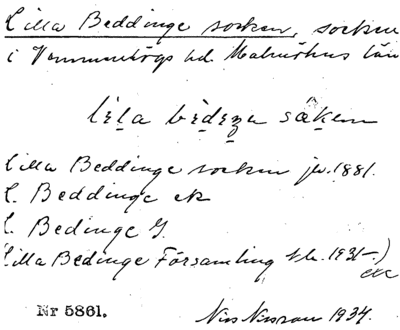 Lilla Beddinge socken, socken
i Vemmenhögs hd. Malmöhus län
Lilla Beddinge socken jb. 1881.
L. Beddinge ek
L. Bedinge G.
Lilla Bedinge Församling 1931
Nr 5861.
Nils Nilsson 1934.